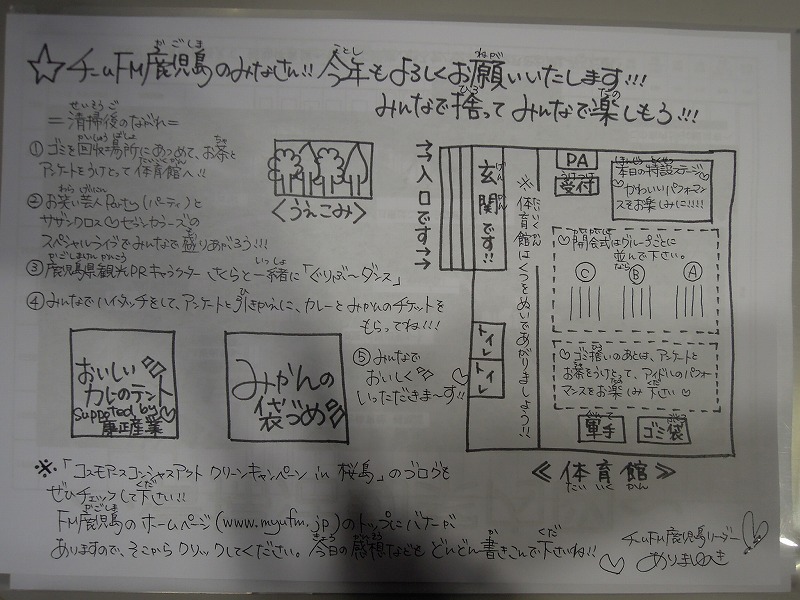 ☆チームFM鹿児島のみなさん!! 今年もよろしくお願いいたします!!!
みんなで捨ってみんなで楽しもう!!!
=清掃後のながれ=
①ゴミを回収場所にあつめて、お茶と
アンケートをうけとって体育館へ!!
②お笑い芸人Party(パーティ)と
サザンクロス♡セブンカラーズの
スペシャルライブでみんなで盛りあがろう!!!
③鹿児島県観光PRキャラクター さくらと一緒に「ぐりぶーダンス」
④みんなでハイタッチをして、アンケートと引きかえに、カレーとみかんのチケットを
もらってね!!!
⑤みんなで
おいしく
いっただきま~す!!
<うえこみ>
おいしい
カレーのテント
Supported by
康正産業
みかんの
袋づめ
→→入口です→→
玄関です!!
※体育館はくつをぬいであがりましょう!!
トイレ
トイレ
PA
受付
本日の特設ステージ
かわいいパフォーマ
ンスをお楽しみに!!!
♡開会式はグループごとに
並んで下さい。
Ⓒ Ⓑ Ⓐ
♡ゴミ捨いのあとは、アンケートと
お茶をうけとって、アイドルのパフォー
マンスをお楽しみ下さい♡
軍手
ゴミ袋
≪体育館≫
※「コスモアースコンシャスアクト クリーンキャンペーン in 桜島」のブログを
ぜひチェックして下さい!!
FM鹿児島のホームページ(www.myufm.jp)のトップにバナーが
ありますので、そこからクリックしてください。今日の感想などもどんどん書きこんで下さいね!!
チームFM鹿児島リーダー